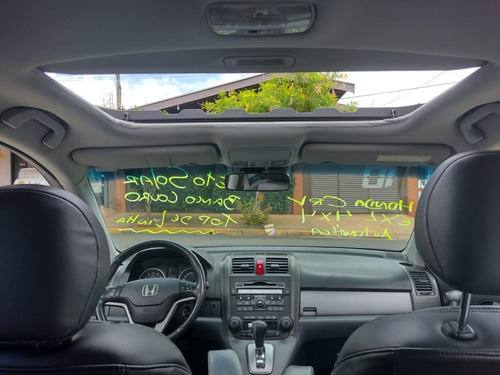 HONDA CRV
EXL 4X4
AUTOMÁTICA
TETO SOLAR
BANCO COURO
TOP DE LINHA